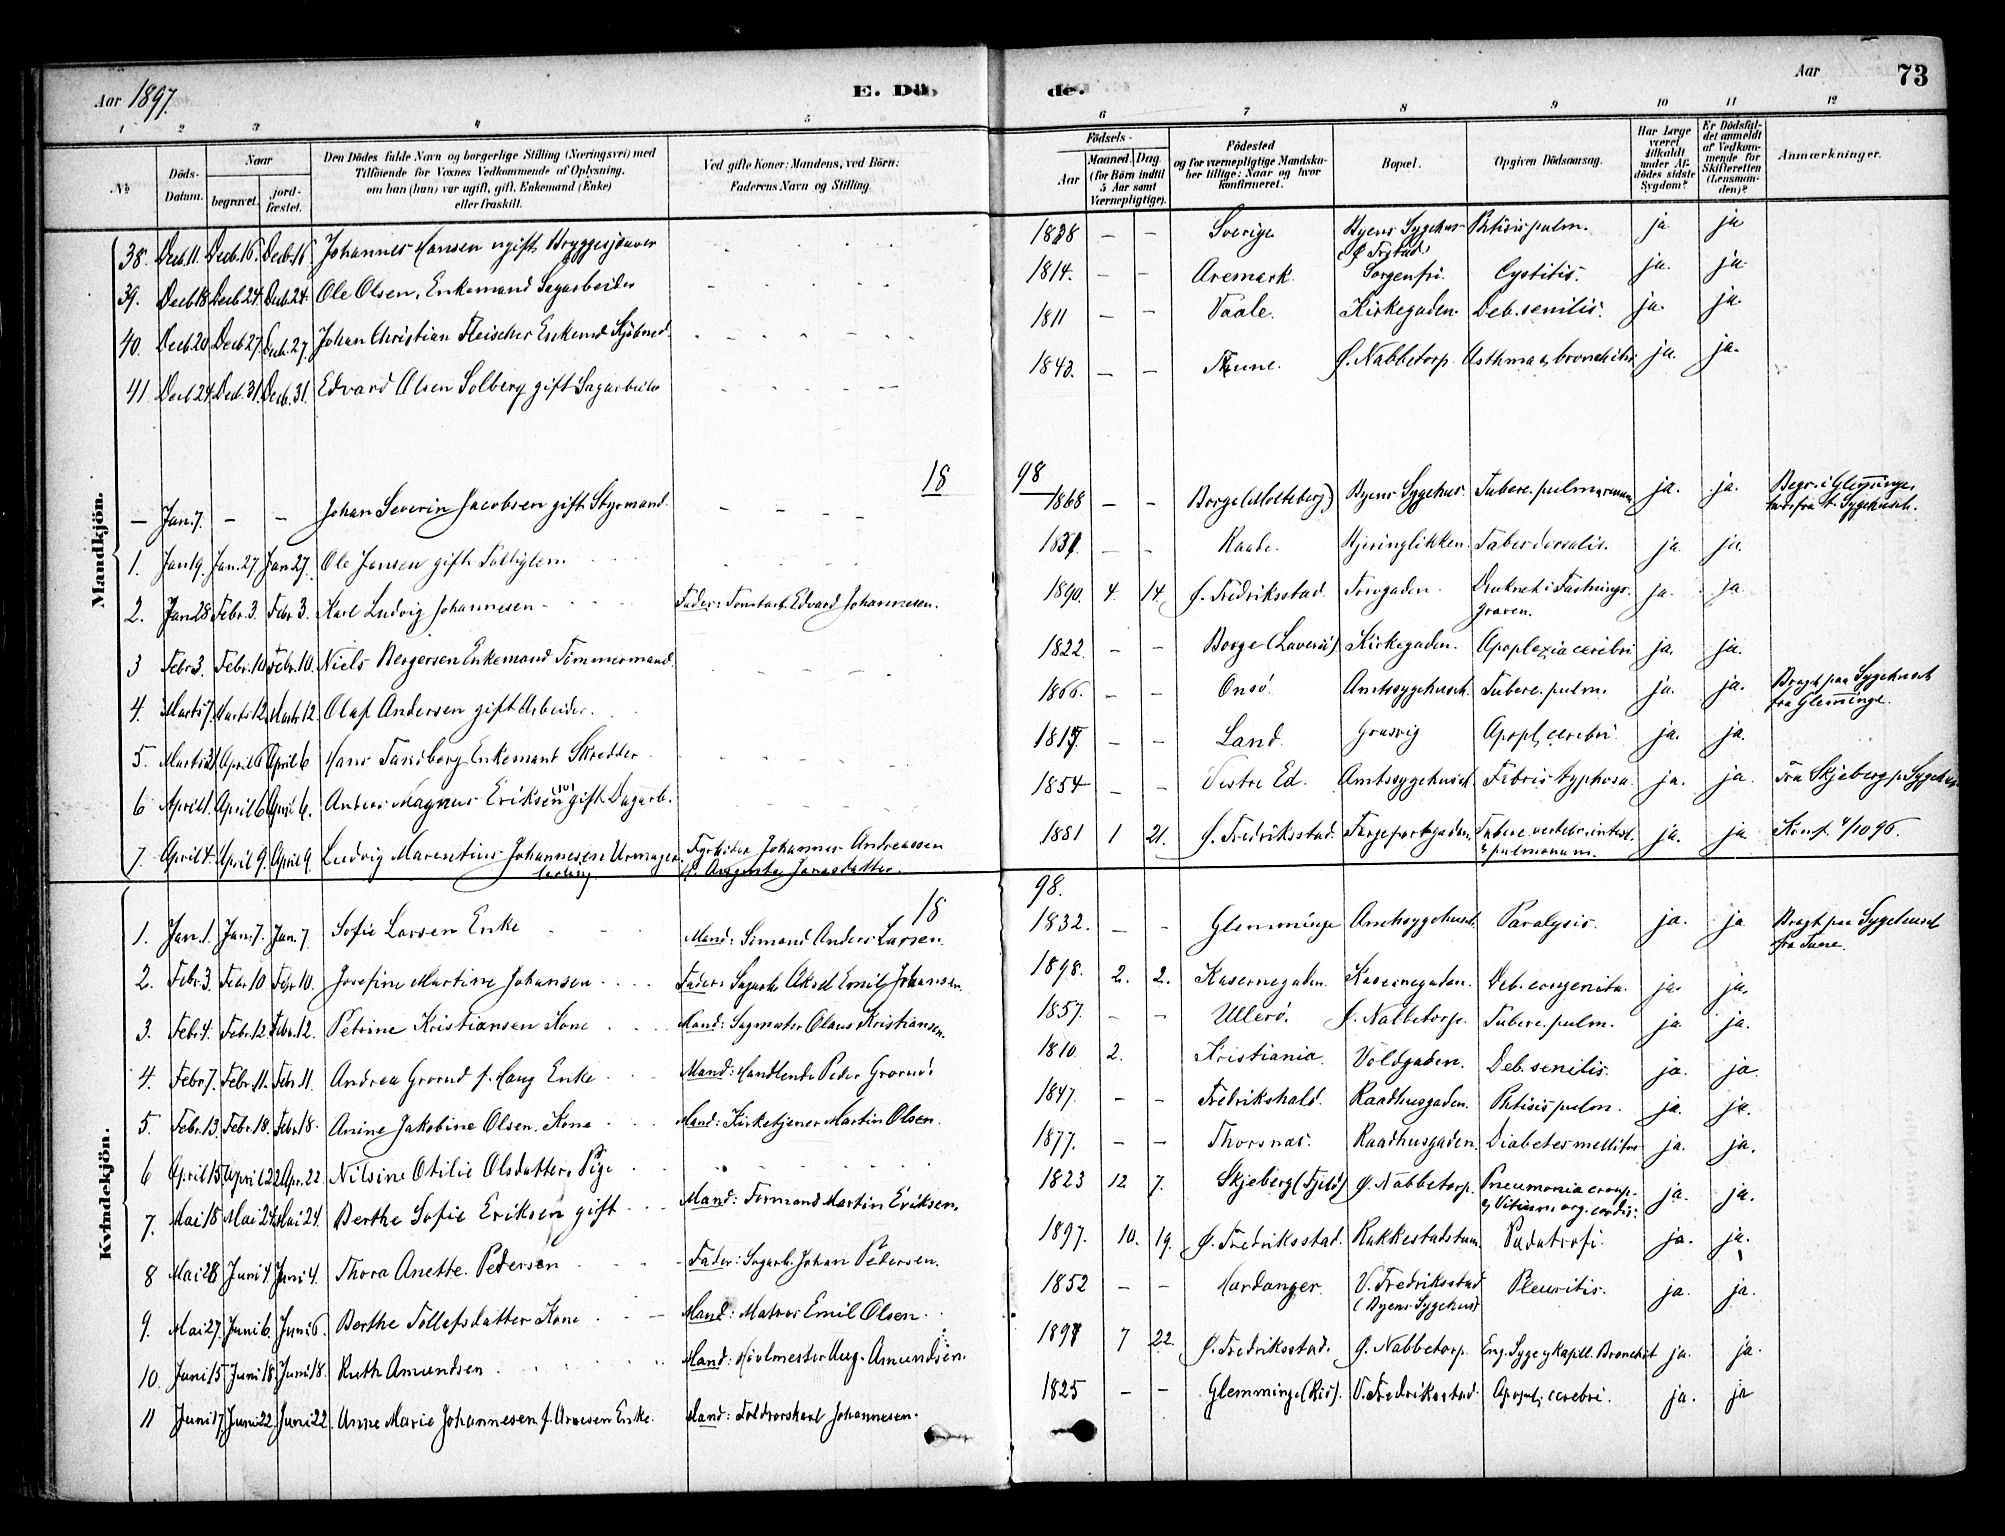 Aar 1897.
E. Dö
de.
Aar
73
1 2 3 4 5 6 7 8 9 10 11 12
No
Döds-Datum.
Naar
begravet.
jord-fæstet.
Den Dödes fulde Navn og borgerlige Stilling (Næringsvei) med
Tilföiende for Voxnes Vedkommende af Oplysning,
om han (hun) var ugift, gift, Enkemand (Enke)
eller fraskilt.
Ved gifte Koner: Mandens, ved Börn:
Faderens Navn og Stilling.
Födsels-
Aar
Maaned. Dag.
(for Börn indtil
5 Aar samt
Værnepligtige).
Födested
og for værnepligtige Mandska-
ber tillige: Naar og hvor
konfirmeret.
Bopæl.
Opgiven Dödsaarsag.
Har Læge
været
tilkaldt
under Af-
dödes sidste
Sygdom?
Er Dödsfal-
det anmeldt
af Vedkom-
mende for
Skifteretten
(Lensman-
den)?
Anmærkninger.
Mandkjön.
38. Decb. 11. Decb. 16. Decb. 16. Johannes Hansen ugift Bryggesjouer 1828 – – Sverige Byens Sygehus Ø Frstad. Phtisis pulm. ja ja
39. Decb 18 Decb 24. Decb 24. Ole Olsen, Enkemand Sagarbeider 1814. – – Aremark. Sorgenfri. Cystitis. ja. ja.
40. Decb 20 Decb. 27 Decb. 27. Johan Christian Fleischer Enkemd Kjöbmd. 1811 – – Vaale. Kirkegaden. Deb. senilis. ja. ja.
41. Decb 24. Decb. 31. Decb. 31. Edvard Olsen Solberg gift Sagarbeider 1843. – – Tune. Ø. Nabbetorp. Asthma & bronchitis ja. ja.
18 98
– Jan. 7. – – Johan Severin Jacobsen gift Styrmand. 1868 – – Borge (Molteberg) Byens Sygehus. Tuberc. pulmonum ja. ja. Begr. i Glemminge, fra Sygehuset.
1. Jan 19. Jan. 27 Jan 27. Ole Jensen gift Fattiglem 1831. – – Raade. Hjeringlökken. Tabes dorsalis. ja. ja.
2. Jan 28 Febr. 3. Febr 3. Karl Ludvig Johannesen Fader: Tomtearb. Edvard Johannesen. 1890. 4. 14. Ø. Fredriksstad. Torvgaden. Druknet i Fæstnings-
graven. ja. ja
3 Febr 3. Febr. 10 Febr. 10. Niels Bergersen Enkemand Timmermand. 1822. – – Borge (Laverö) Kirkegaden. Apoplexia cerebri ja. ja.
4. Marts 7. Marts 12. Marts 12. Olaf Andersen gift Arbeider. 1866. – – Onsö. Amtssygehuset. Tuberc. pulm. ja. ja. Bragt paa Sygehuset
fra Glemminge.
5. Marts 31 April 6 April 6 Hans Enkemand Skredder 1815 – – Land. Apopl. cerebri. ja. ja.
6 April 1. April 6 April 6. Anders Magnus Eriksen gift Dagarb. 1854 – – Vestre Ed. Amtssygehuset. Febris typhosa. ja. ja. Fra Skjeberg p. Sygehus.
7. April 4. April 9. April 9. Ludvig Marentius Johannesen Urmager-
lærling Fyrböder Johannes Andreassen
& Augusta Jonasdatter. 1881 1 21. Ø. Fredriksstad. Færgeportgaden. Tuberc. vertebr. intest.
& pulmonum. ja. ja Konf. 4/10 96.
Kvindekjön.
18 98.
1. Jan. 1. Jan. 7. Jan. 7 Sofie Larsen Enke Mand: Sömand Anders Larsen. 1832. – – Glemminge Amtssygehuset. Paralysis. ja. ja Bragt paa Sygehuset
fra Tune.
2. Febr. 3. Febr 10 Febr 10. Josefine Martine Johansen Fader: Sagarb. Aksel Emil Johansen. 1898. 2. 2. Kasernegaden. Kasernegaden. Deb. congenita. ja. ja.
3. Febr. 4. Febr. 12 Febr. 12. Petrine Kristiansen Kone Mand: Sagmester Olaus Kristiansen. 1857. – – Ullerö. Ø. Nabbetorp. Tuberc. pulm. ja. ja.
4. Febr. 7. Febr. 11. Febr 11. Andrea Grorud f. Haug Enke Mand: Handlende Peder Grorud. 1810. 2. Kristiania. Voldgaden. Deb. senilis. ja. ja.
5. Febr. 13. Febr. 18. Febr. 18. Anine Jakobine Olsen. Kone Mand: Kirketjener Martin Olsen. 1847. – – Fredrikshald. Raadhusgaden. Phtisis pulm. ja. ja.
6 April 15 April 22 Apr. 22. Nilsine Otilie Olsdatter, Pige 1877. – – Thorsnæs. Raadhusgaden. Diabetes mellitus ja. ja.
7. Mai 18 Mai 24. Mai 24. Berthe Sofie Eriksen gift Mand: Formand Martin Eriksen. 1823 12 7. Skjeberg Ø. Nabbetorp. Pneumonia croup.
& Vitium org. cordis. ja. ja.
8 Mai 28 Juni 4. Juni 4. Thora Anette Pedersen Fader: Sagarb. Johan Pedersen. 1897. 10. 19. Ø. Fredriksstad. Rakkestadstun. Pædatrofi. ja. ja.
9. Mai 27. Juni 6. Juni 6. Berthe Tollefsdatter Kone Mand: Matros Emil Olsen. 1852 – – Hardanger. V. Fredriksstad
(Byens Sygehus) Pleuritis. ja. ja.
10. Juni 15 Juni 18. Juni 18. Ruth Amundsen Mand: Hövlmester Aug. Amundsen. 1897 7 22. Ø. Fredriksstad. Ø. Nabbetorp. Eng. Syge & kapill. Bronchit ja. ja.
11 Juni 17 Juni 22 Juni 22. Anne Marie Johannesen f. Arnesen Enke. Mand: Johannesen. 1825 – – Glemminge (Ris). V. Fredriksstad. Apopl. cerebri. ja. ja